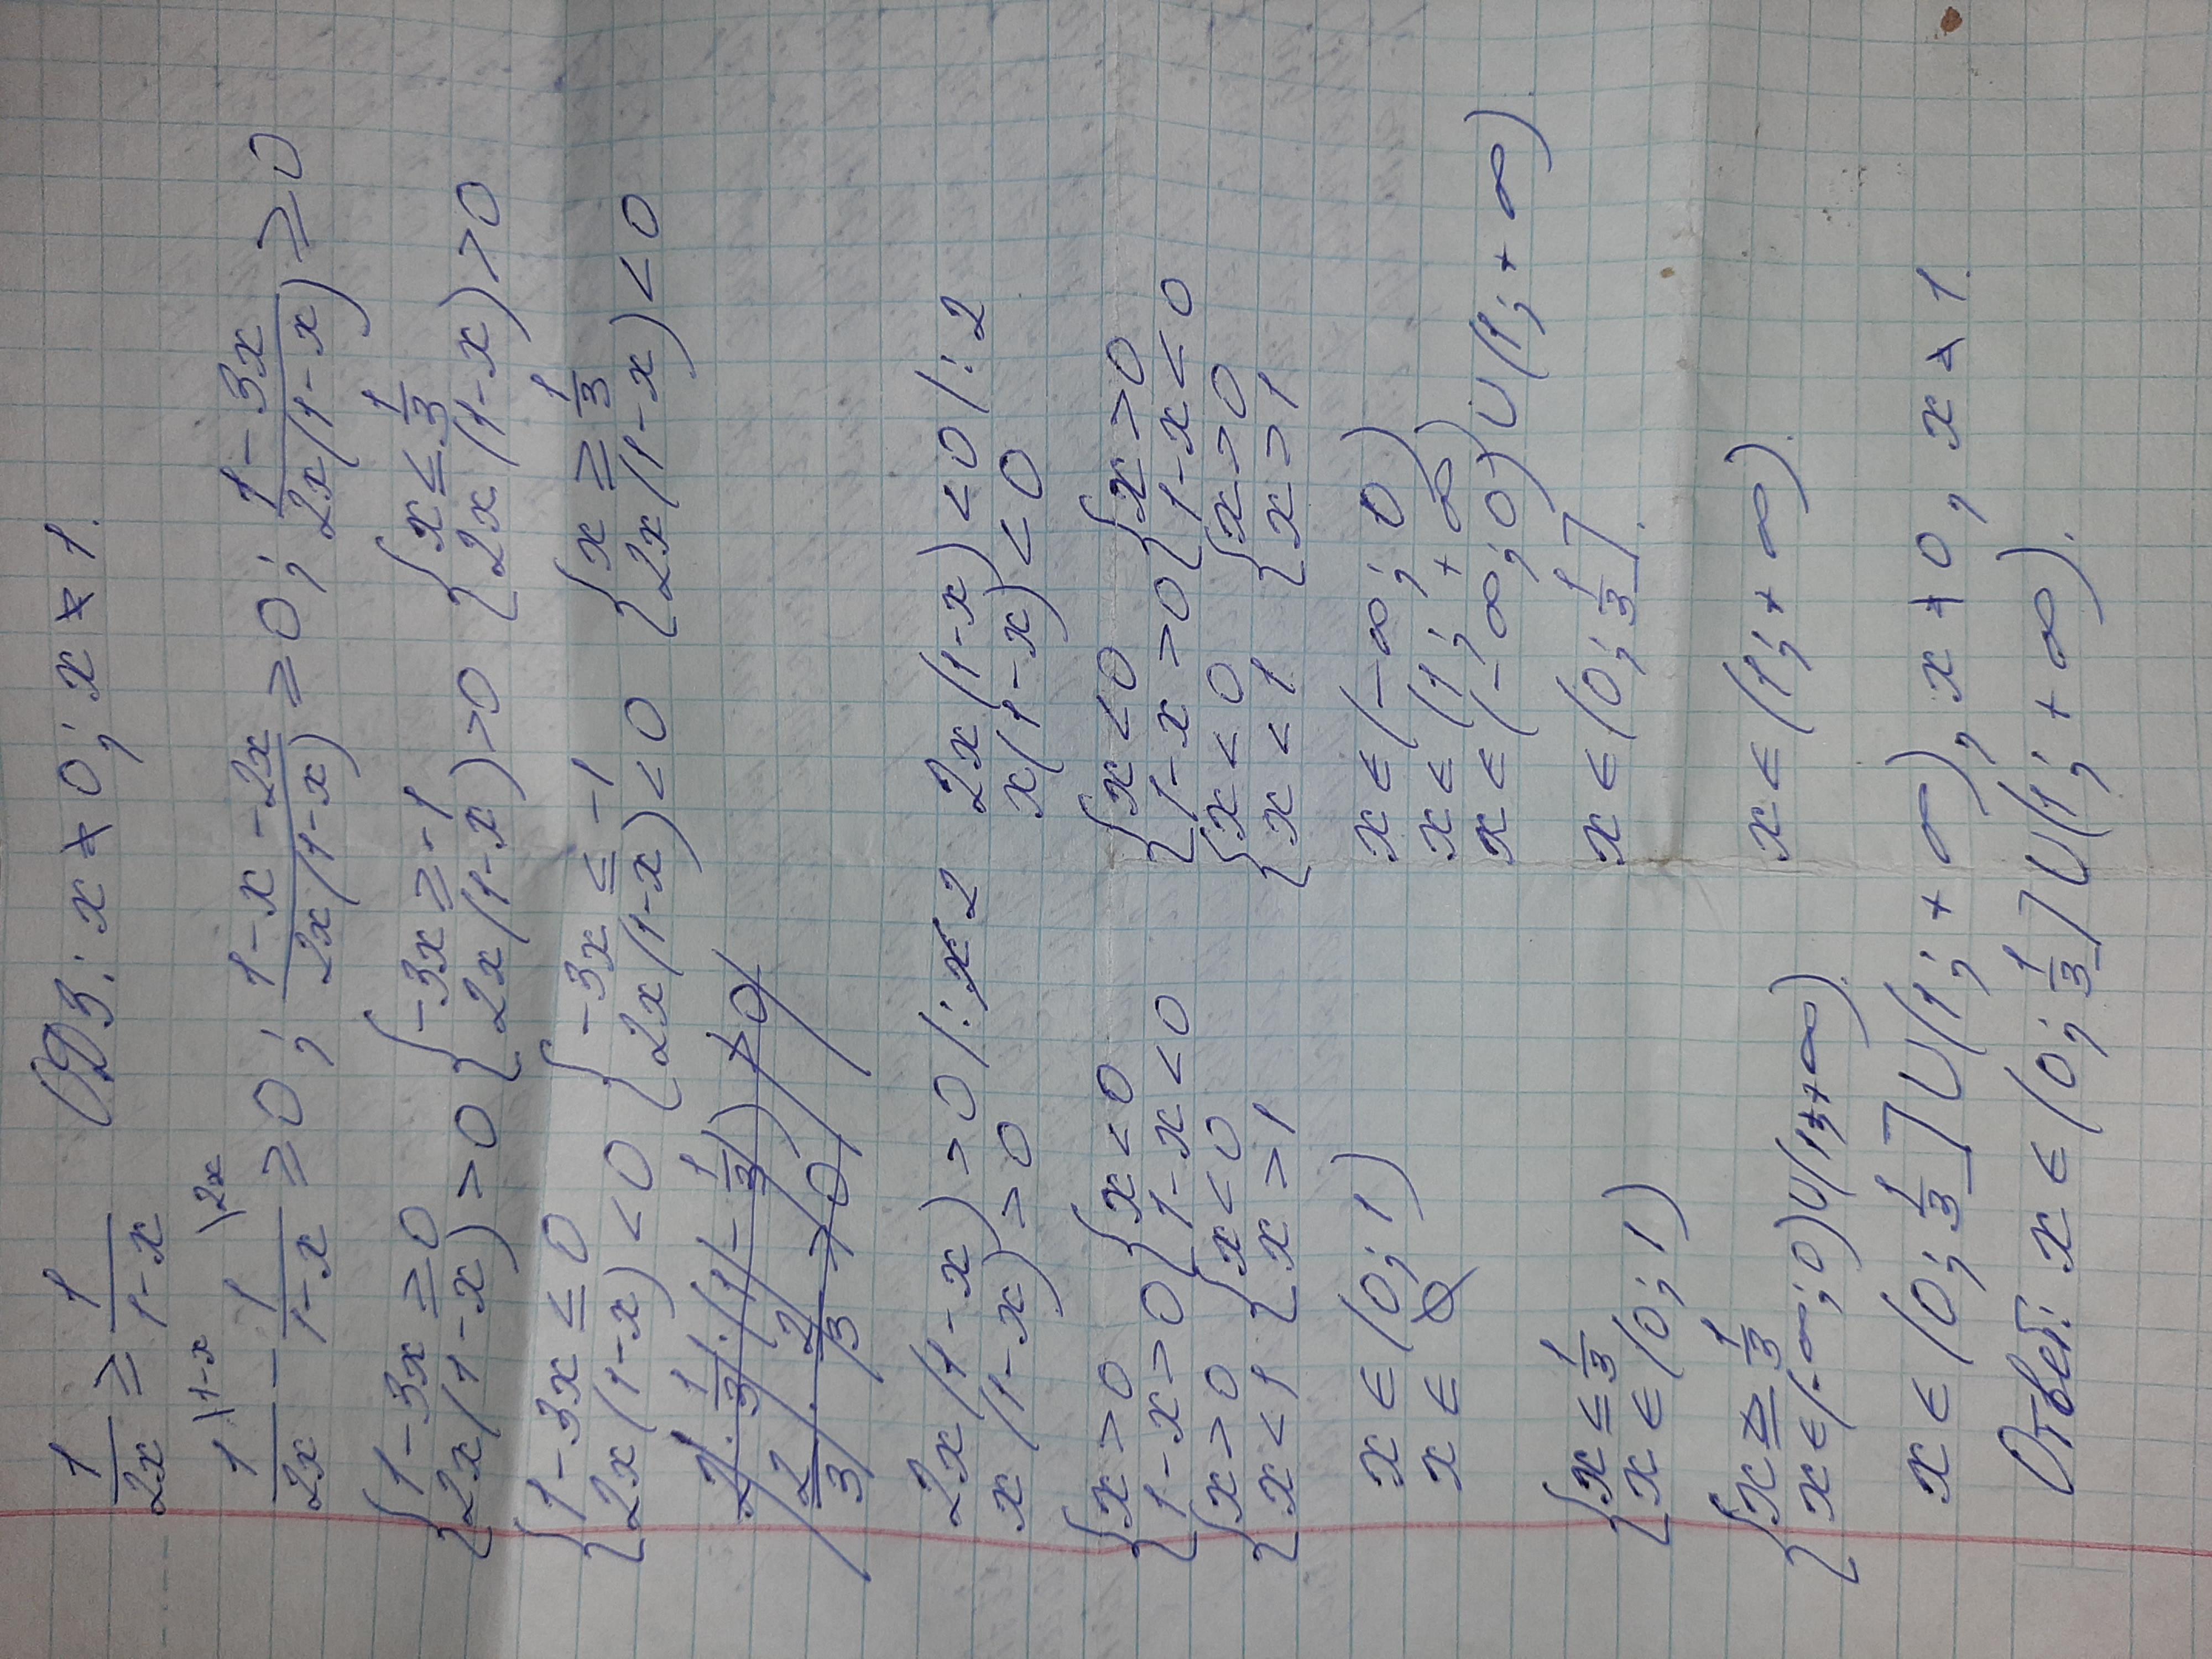 1/2x ≥ 1/1-x ОДЗ: x ≠ 0; x ≠ 1.
1\1-x/2x - 1\2x/1-x ≥ 0; 1-x-2x/2x(1-x) ≥ 0; 1-3x/2x(1-x) ≥ 0
{1-3x ≥ 0 {-3x ≥ -1 {x ≤ 1/3
2x(1-x) > 0 2x(1-x) > 0 2x(1-x) > 0
{1-3x ≤ 0 {-3x ≤ -1 {x ≥ 1/3
2x(1-x) < 0 2x(1-x) < 0 2x(1-x) < 0
2x(1-x) > 0 /: 2 2x(1-x) < 0 /: 2
x(1-x) > 0 x(1-x) < 0
{x > 0 {x < 0 {x < 0 {x > 0
1-x > 0 1-x < 0 1-x > 0 1-x < 0
{x > 0 {x < 0 {x < 0 {x > 0
x < 1 x > 1 x < 1 x > 1
x ∈ (0; 1) x ∈ (-∞; 0)
x ∈ ∅ x ∈ (1; +∞)
x ∈ (-∞; 0) ∪ (1; +∞)
{x ≤ 1/3 x ∈ (0; 1/3].
x ∈ (0; 1)
{x ≥ 1/3 x ∈ (1; +∞).
x ∈ (-∞; 0) ∪ (1; +∞)
x ∈ (0; 1/3] ∪ (1; +∞), x ≠ 0, x ≠ 1.
Ответ: x ∈ (0; 1/3] ∪ (1; +∞).